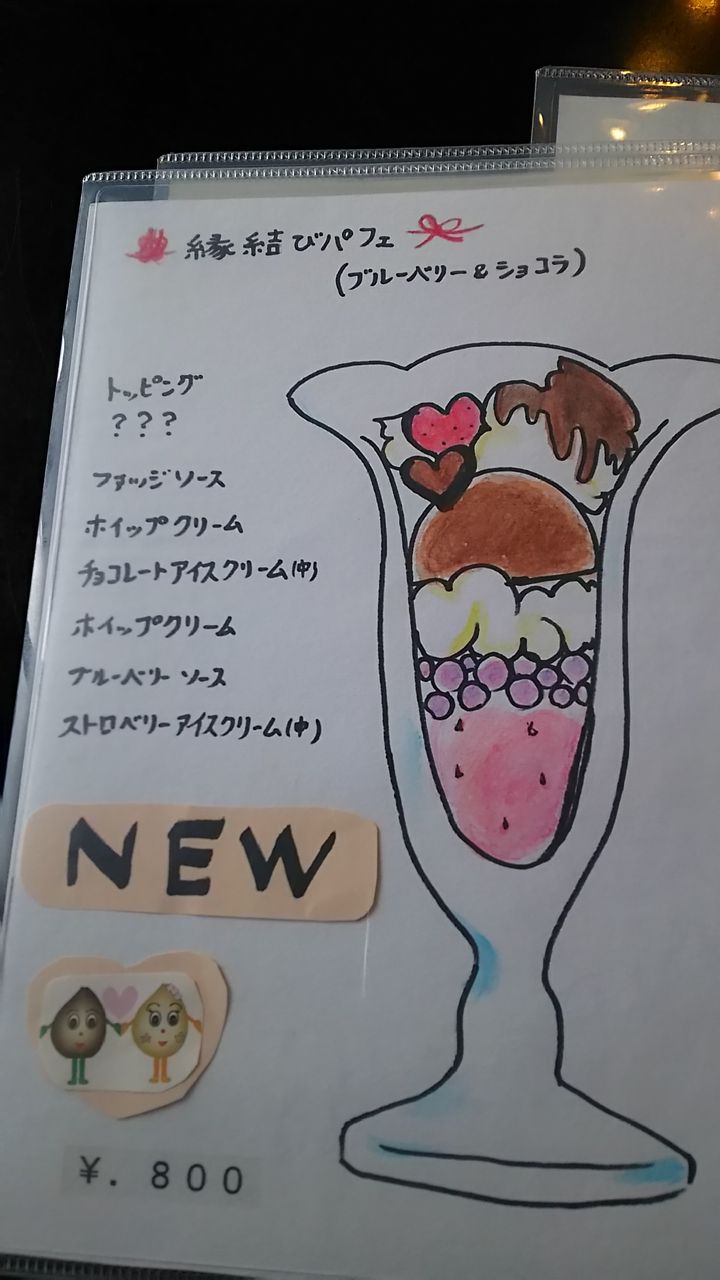 縁結びパフェ
(ブルーベリー&ショコラ)
トッピング
???
ファッジソース
ホイップクリーム
チョコレートアイスクリーム(中)
ホイップクリーム
ブルーベリーソース
ストロベリーアイスクリーム(中)
NEW
¥.800